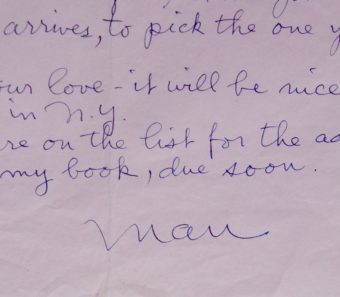 arrives, to pick the one y
our love - it will be nice
in N.Y.
re on the list for the ad
my book, due soon.
Man